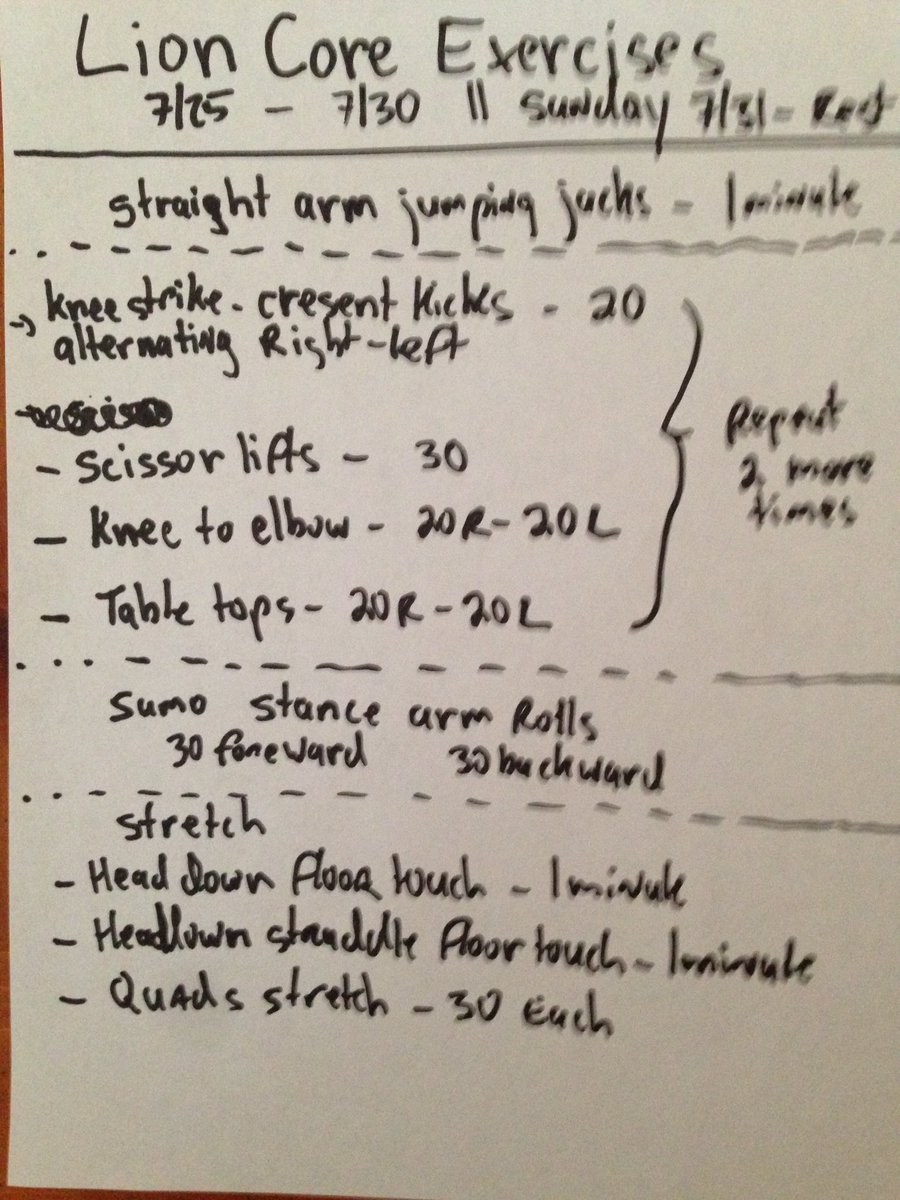 Lion Core Exercises
7/25 - 7/30 || Sunday 7/31 - Rest
straight arm jumping jacks - 1 minute
→ Knee strike - cresent Kicks - 20
alternating Right - Left
- Scissor lifts - 30
- Knee to elbow - 20R - 20L
- Table tops - 20R - 20L
Repeat
2 more
times
Sumo stance arm Rolls
30 foreward 30 backward
stretch
- Head down floor touch - 1 minute
- Head down straddle floor touch - 1 minute
- Quads stretch - 30 Each